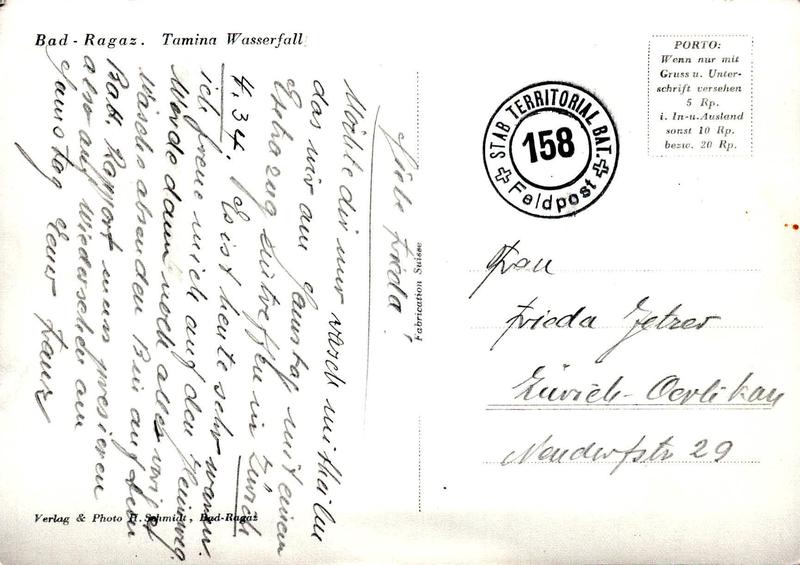 Bad - Ragaz. Tamina Wasserfall
Liebe Frieda!
Möchte dir nur rasch mitteilen
das wir am Samstag mit einem
Extrazug eintreffen in Zürich
4.34. Es ist heute sehr warm.
ich freue mich auf den Heimweg.
Werde dann noch alles vorig
Wäsche absenden Bin auf dem
Batt. Rapport muss pressieren
also auf Wiedersehen am
Samstag Euer Franz
Verlag & Photo H. Schmidt, Bad-Ragaz
Fabrication Suisse
STAB TERRITORIAL BAT.
158
Feldpost
PORTO:
Wenn nur mit
Gruss u. Unter-
schrift versehen
5 Rp.
i. In-u. Ausland
sonst 10 Rp.
bezw. 20 Rp.
Frau
Frieda Jetzer
Zürich-Oerlikon
Neudorfstr 29